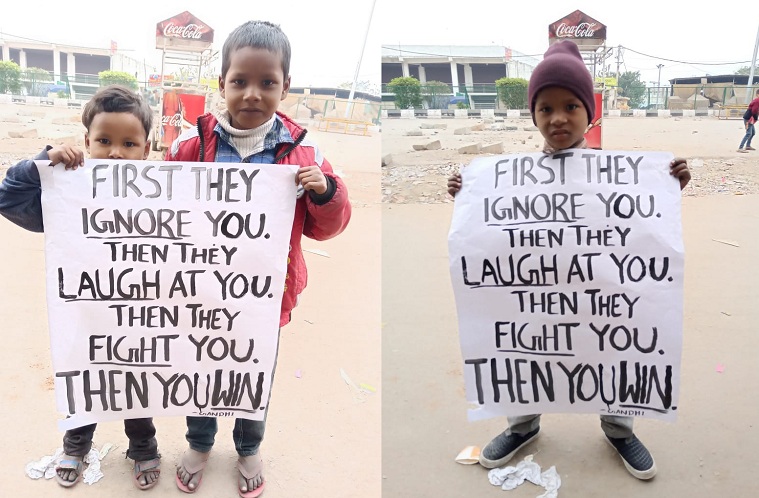 Coca-Cola
Coca-Cola
FIRST THEY
IGNORE YOU.
THEN THEY
LAUGH AT YOU.
THEN THEY
FIGHT YOU.
THEN YOU WIN.
-GANDHI
Coca-Cola
FIRST THEY
IGNORE YOU.
THEN THEY
LAUGH AT YOU.
THEN THEY
FIGHT YOU.
THEN YOU WIN.
-GANDHI